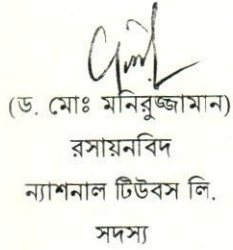 (ড. মোঃ মনিরুজ্জামান)
রসায়নবিদ
ন্যাশনাল টিউবস লি.
সদস্য